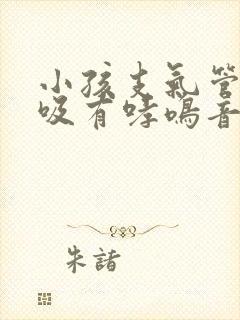 小孩支氣管
吸有哮鳴音
朱諸